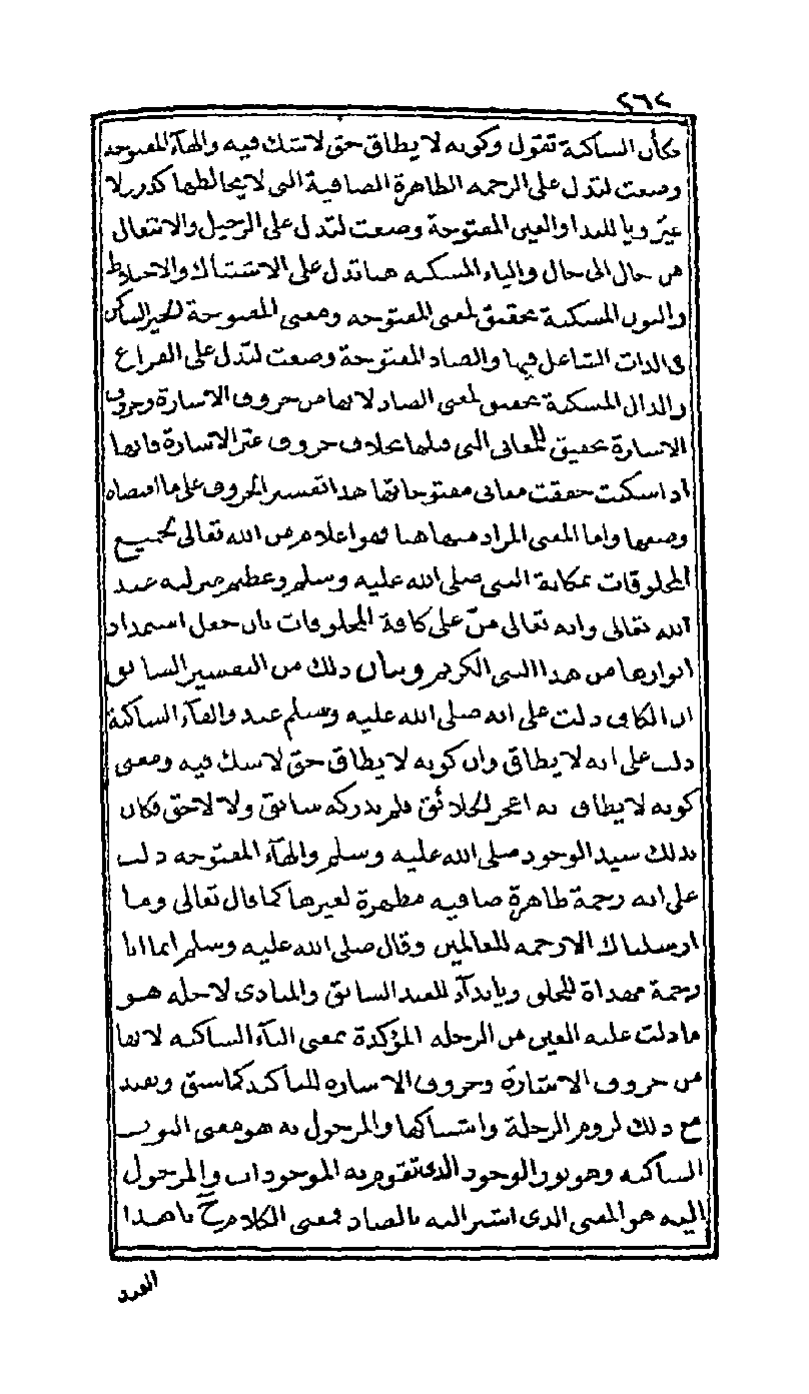 ٢٦٢
فكأن الساكنة تقول وكونه لا يطاق حق لا شك فيه والهآء المفتوحة
وضعت لتدل على الرحمة الطاهرة الصافية التى لا يخالطها كدر ولا
غير ويا للندا والعين المفتوحة وضعت لتدل على الرحيل والانتقال
من حال الى حال والياء المسكنة هنا تدل على الاشتباك والاختلاط
والنون المسكنة تحقيق لمعنى المفتوحة ومعنى المفتوحة الخير الساكن
فى الذات الشاعل فيها والصاد المفتوحة وضعت لتدل على الفراغ
والدال المسكنة تحقيق لمعنى الصاد لانها من حروف الاشارة وحروف
الاشارة تحقيق للمعانى التى قبلها بخلاف حروف غير الاشارة فانها
اذا سكنت حققت معانى مفتوحاتها هذا تفسير الحروف على ما اقتضاه
وضعها واما المعنى المراد منها هنا فهو اعلام من الله تعالى لجميع
المخلوقات بمكانة النبى صلى الله عليه وسلم وعظيم منزلته عند
الله تعالى وانه تعالى منّ على كافة المخلوقات بان جعل استمداد
انوارها من هذا النبى الكريم وبيان ذلك من التفسير السابق
ان الكاف دلت على انه صلى الله عليه وسلم عبد والفآء الساكنة
دلت على انه لا يطاق وان كونه لا يطاق حق لا شك فيه ومعنى
كونه لا يطاق انه اعجز الخلائق فلم يدركه سابق ولا لاحق فكان
بذلك سيد الوجود صلى الله عليه وسلم والهآء المفتوحة دلت
على انه رحمة طاهرة صافية مطهرة لغيرها كما قال تعالى وما
ارسلناك الا رحمة للعالمين وقال صلى الله عليه وسلم انما انا
رحمة مهداة للخلق ويا ندآء للعبد السابق والمنادى لاجله هو
ما دلت عليه العين من الرحلة المؤكدة بمعنى اليآء الساكنة لانها
من حروف الاشارة وحروف الاشارة للتاكيد كما سبق ويفيد
مع ذلك لزوم الرحلة واشتباكها والمرحول به هو معنى النون
الساكنة وهو نور الوجود الذى تقوم به الموجودات والمرحول
اليه هو المعنى الذى اشير اليه بالصاد فمعنى الكلام ح يا هذا
العبد